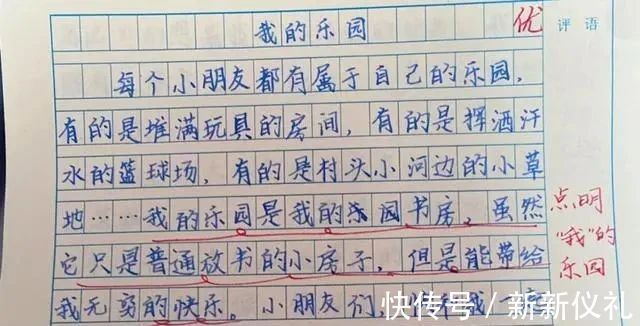 我的乐园
优
评语
每个小朋友都有属于自己的乐园，
有的是堆满玩具的房间，有的是挥洒汗
水的篮球场，有的是村头小河边的小草
地……我的乐园是我的乐园书房，虽然
点明
它只是普通放书的小房子，但是能带给
"我"的
我无穷的快乐。小朋友们，
乐园
快传号／新新仪礼